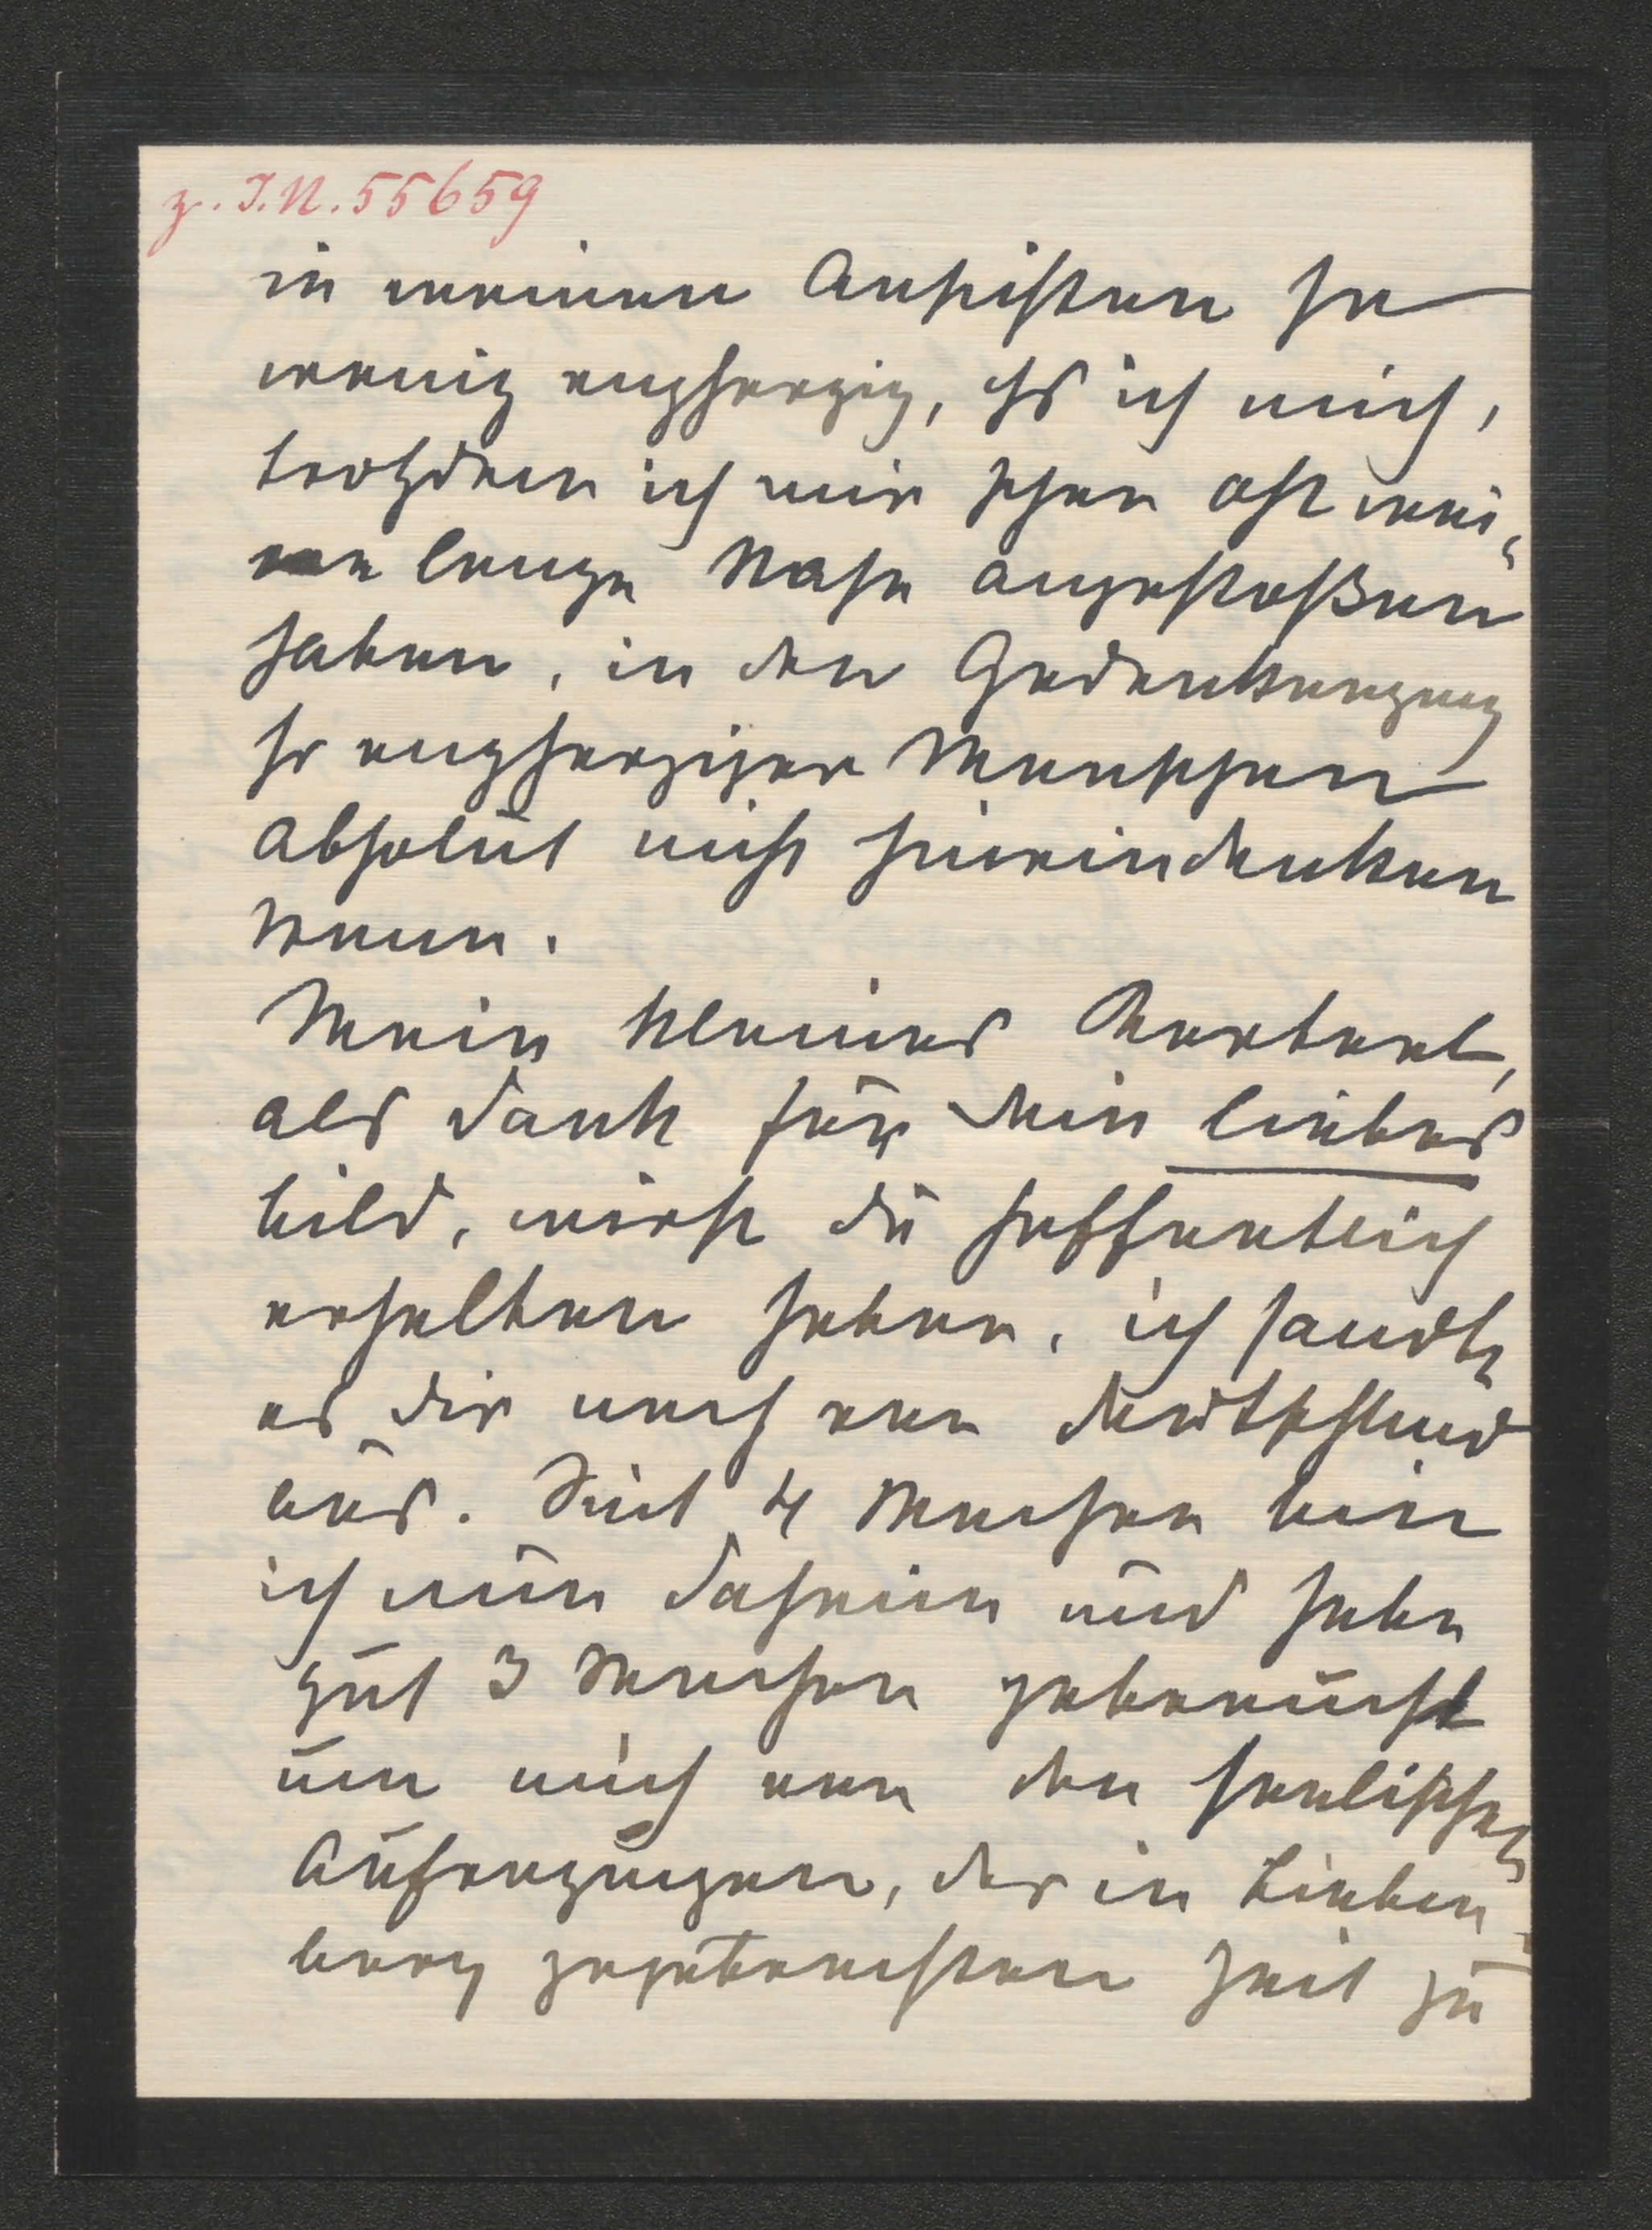 z. I.N. 55659
in meinen Ansichten so
wenig engherzig, ds ich mich,
trotzdem ich mir schon oft mei-
ne lange Nase angestoßen
haben, in den Gedankengang
so engherziger Menschen
absolut nicht hineindenken
kann.
Mein kleines Portrait,
als Dank für dein liebes
bild, wirst du hoffentlich
erhalten haben, ich sandte
es dir noch von Deutschland
aus. Seit 4 Wochen bin
ich nun daheim und habe
gut 3 Wochen gebraucht
um mich von den seelischen
Aufregungen, der in Lieben-
berg zugebrachten Zeit zu